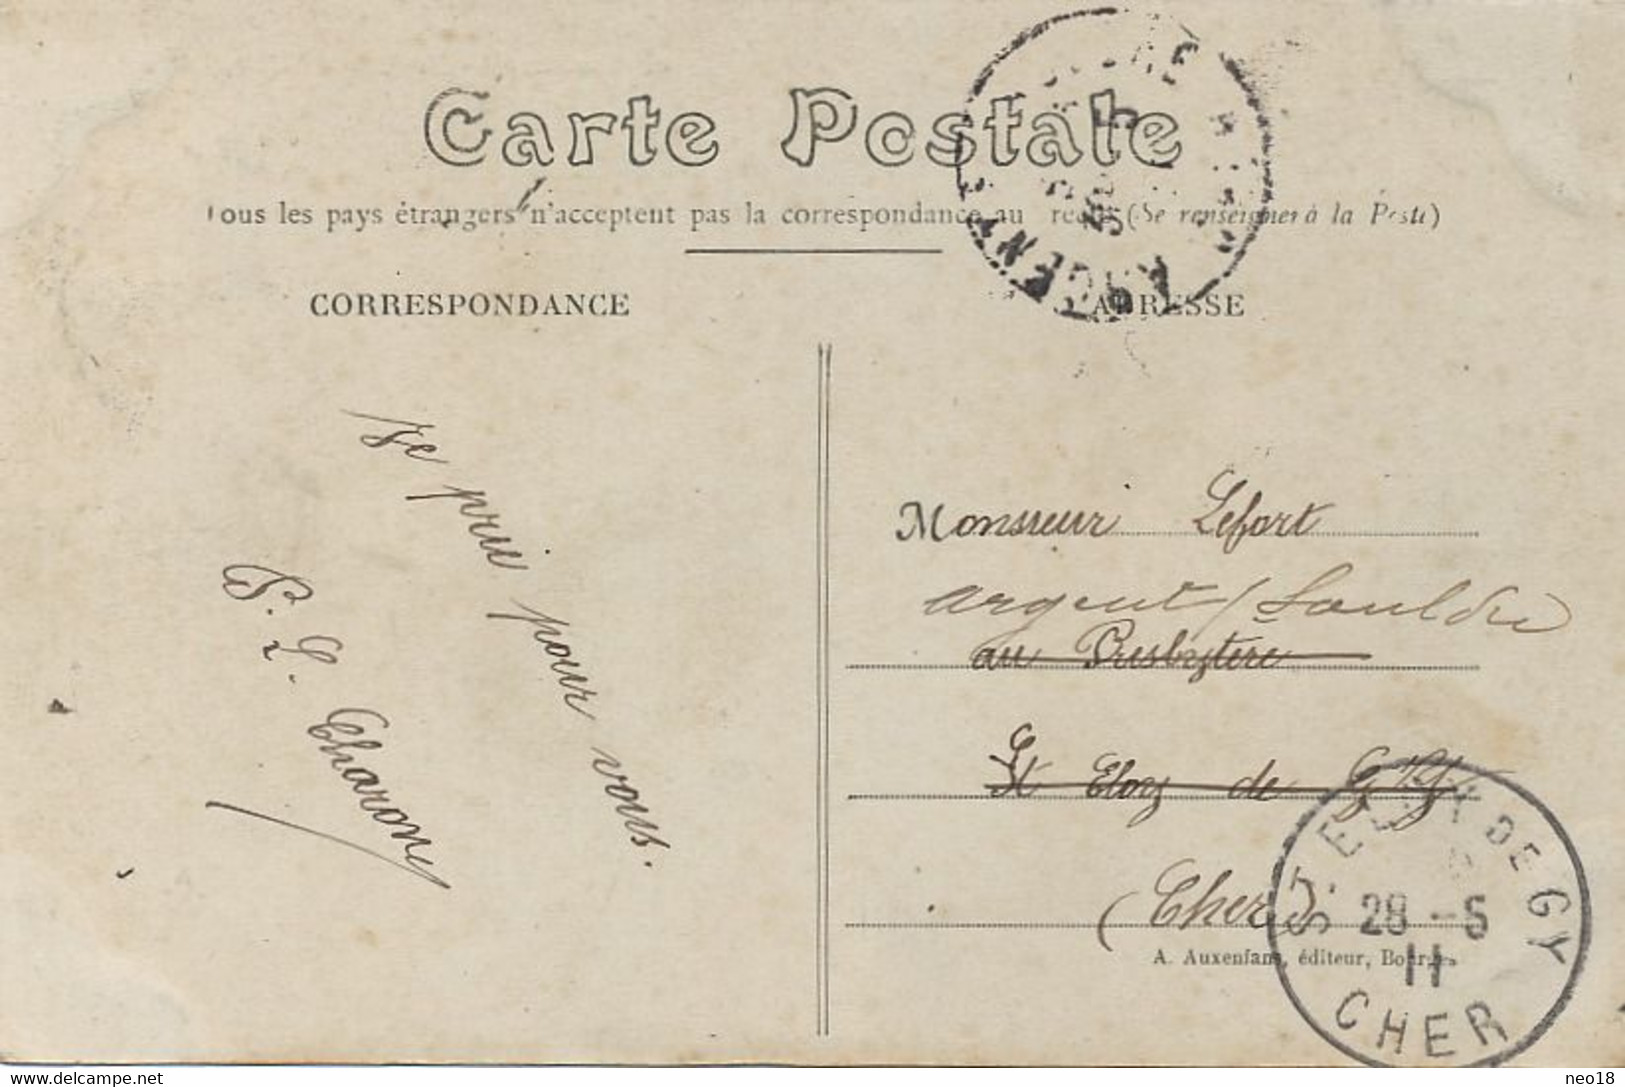 Carte Postale
Tous les pays étrangers n'acceptent pas la correspondance au recto (Se renseigner à la Poste)
CORRESPONDANCE
ADRESSE
Je prie pour vous.
P. L. Charon
Monsieur Lefort
Argent / Sauldre
au Presbytère
St Eloy de Gy
(Cher)
A. Auxenfans, éditeur, Bourges
ARGENT
ST ELOY DE GY
28 - 5
11
CHER
www.delcampe.net
neo18